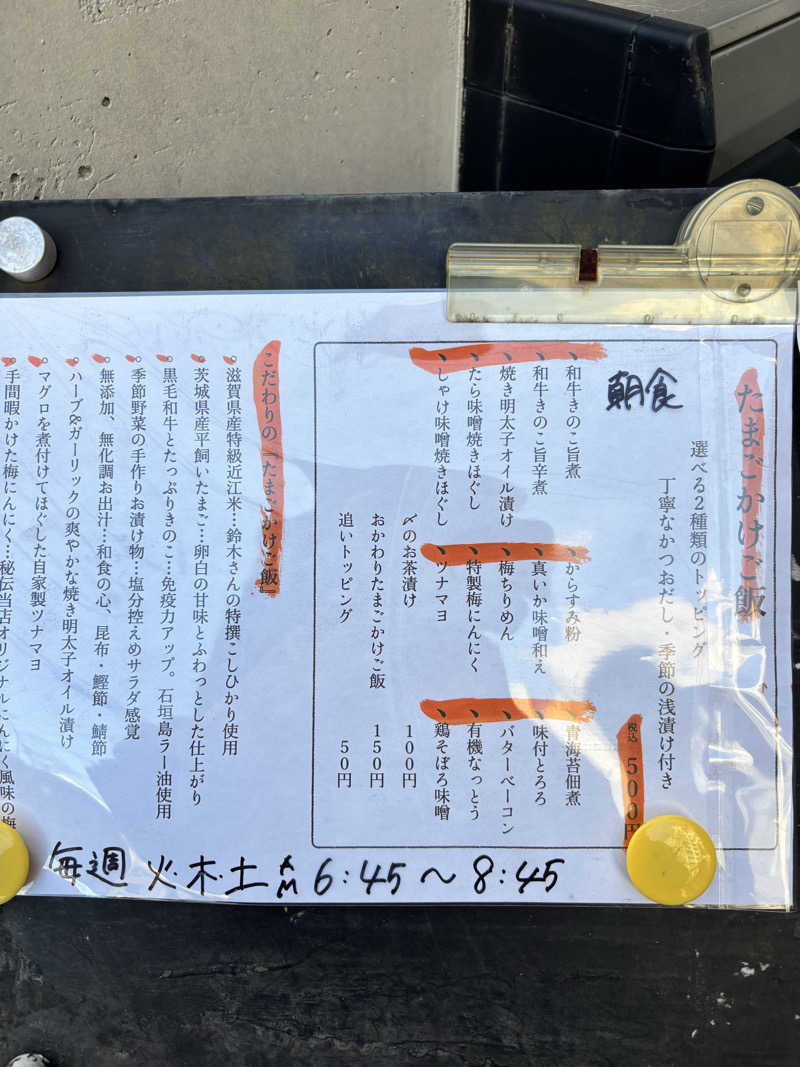 たまごかけご飯
朝食
選べる2種類のトッピング
丁寧なかつおだし・季節の浅漬け付き
税込 500円
、和牛きのこ旨煮
、和牛きのこ旨辛煮
、焼き明太子オイル漬け
、たら味噌焼きほぐし
、しゃけ味噌焼きほぐし
、からすみ粉
、真いか味噌和え
、梅ちりめん
、特製梅にんにく
、ツナマヨ
、青海苔佃煮
、味付とろろ
、バターベーコン
、有機なっとう
、鶏そぼろ味噌
〆のお茶漬け 100円
おかわりたまごかけご飯 150円
追いトッピング 50円
こだわりの『たまごかけご飯』
○滋賀県産特級近江米…鈴木さんの特撰こしひかり使用
○茨城県産平飼いたまご…卵白の甘味とふわっとした仕上がり
○黒毛和牛とたっぷりきのこ…免疫力アップ。石垣島ラー油使用
○季節野菜の手作りお漬け物…塩分控えめサラダ感覚
○無添加、無化調お出汁…和食の心、昆布・鰹節・鯖節
○ハーブ&ガーリックの爽やかな焼き明太子オイル漬け
○マグロを煮付けてほぐした自家製ツナマヨ
○手間暇かけた梅にんにく…秘伝当店オリジナルにんにく風味の梅
毎週 火・木・土 AM 6:45〜8:45